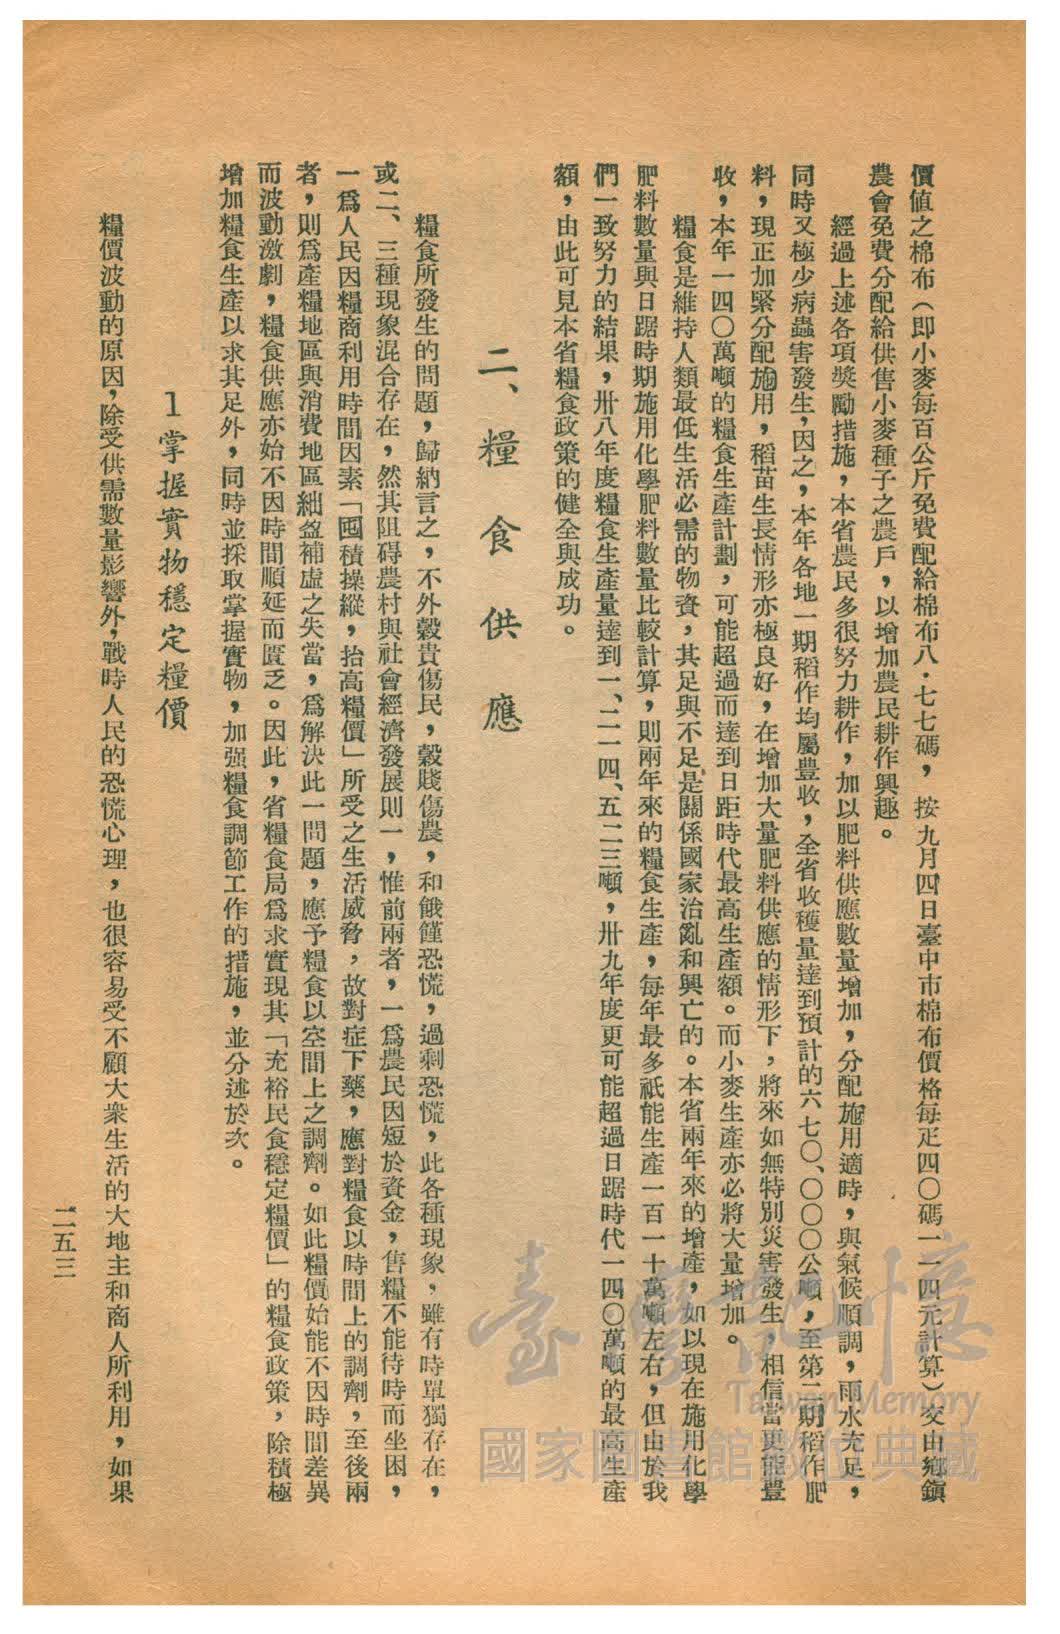 價値之棉布（卽小麥每百公斤免費配給棉布八・七七碼，按九月四日臺中市棉布價格每疋四〇碼一一四元計算）交由鄉鎭
農會免費分配給供售小麥種子之農戶，以增加農民耕作興趣。
經過上述各項獎勵措施，本省農民多很努力耕作，加以肥料供應數量增加，分配施用適時，與氣候順調，雨水充足，
同時又極少病蟲害發生，因之，本年各地一期稻作均屬豊收，全省收穫量達到預計的六七〇、〇〇〇公噸，至第二期稻作肥
料，現正加緊分配施用，稻苗生長情形亦極良好，在增加大量肥料供應的情形下，將來如無特別災害發生，相信當更能豊
收，本年一四〇萬噸的糧食生產計劃，可能超過而達到日距時代最高生產額。而小麥生產亦必將大量增加。
糧食是維持人類最低生活必需的物資，其足與不足是關係國家治亂和興亡的。本省兩年來的增產，如以現在施用化學
肥料數量與日踞時期施用化學肥料數量比較計算，則兩年來的糧食生產，每年最多祇能生產一百一十萬噸左右，但由於我
們一致努力的結果，卅八年度糧食生產量達到一、二一四、五二三噸，卅九年度更可能超過日踞時代一四〇萬噸的最高生產
額，由此可見本省糧食政策的健全與成功。
二、糧食供應
糧食所發生的問題，歸納言之，不外穀貴傷民，穀賤傷農，和餓饉恐慌，過剩恐慌，此各種現象，雖有時單獨存在，
或二、三種現象混合存在，然其阻碍農村與社會經濟發展則一，惟前兩者，一爲農民因短於資金，售糧不能待時而坐困，
一爲人民因糧商利用時間因素「囤積操縱，抬高糧價」所受之生活威脅，故對症下藥，應對糧食以時間上的調劑，至後兩
者，則爲產糧地區與消費地區絀盈補虛之失當，爲解決此一問題，應予糧食以空間上之調劑。如此糧價始能不因時間差異
而波動激劇，糧食供應亦始不因時間順延而匱乏。因此，省糧食局爲求實現其「充裕民食穩定糧價」的糧食政策，除積極
增加糧食生產以求其足外，同時並採取掌握實物，加强糧食調節工作的措施，並分述於次。
1掌握實物穩定糧價
糧價波動的原因，除受供需數量影響外，戰時人民的恐慌心理，也很容易受不顧大衆生活的大地主和商人所利用，如果
二五三
臺灣記憶
Taiwan Memory
國家圖書館數位典藏